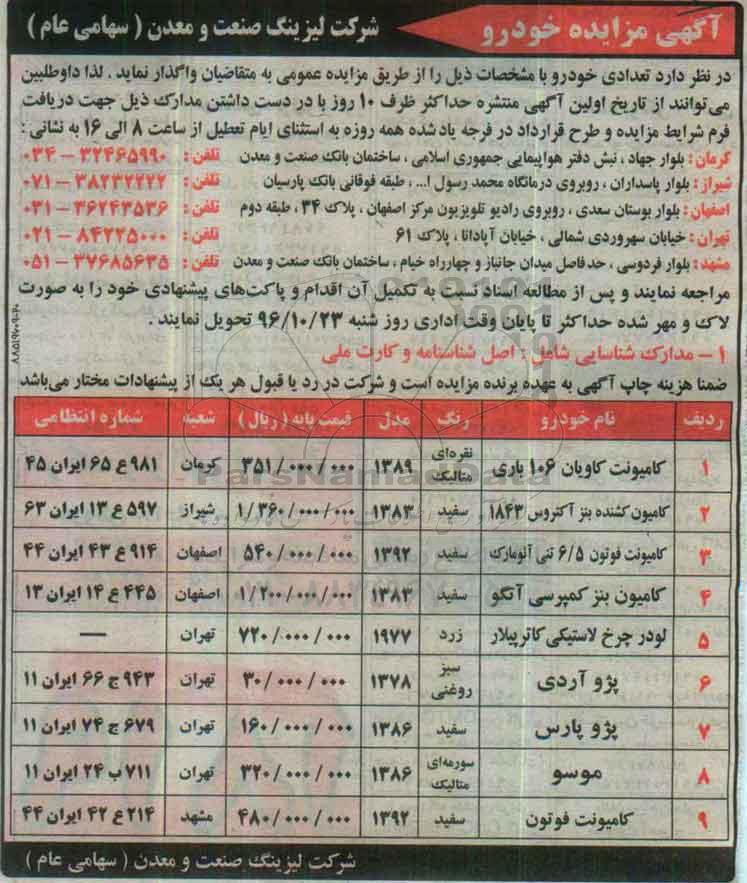 آگهی مزایده خودرو شرکت لیزینگ صنعت و معدن ( سهامی عام )
در نظر دارد تعدادی خودرو با مشخصات ذیل را از طریق مزایده عمومی به متقاضیان واگذار نماید . لذا داوطلبین
می‌توانند از تاریخ اولین آگهی منتشره حداکثر ظرف ۱۰ روز با در دست داشتن مدارک ذیل جهت دریافت
فرم شرایط مزایده و طرح قرارداد در فرجه یاد شده همه روزه به استثنای ایام تعطیل از ساعت ۸ الی ۱۶ به نشانی :
کرمان : بلوار جهاد ، نبش دفتر هواپیمایی جمهوری اسلامی ، ساختمان بانک صنعت و معدن تلفن : ۳۲۴۶۵۹۹۰ – ۰۳۴
شیراز : بلوار پاسداران ، روبروی درمانگاه محمد رسول ا... ، طبقه فوقانی بانک پارسیان تلفن : ۳۸۲۳۲۲۲۲ – ۰۷۱
اصفهان : بلوار بوستان سعدی ، روبروی رادیو تلویزیون مرکز اصفهان ، پلاک ۳۴ ، طبقه دوم تلفن : ۳۶۲۴۳۵۳۶ – ۰۳۱
تهران : خیابان سهروردی شمالی ، خیابان آپادانا ، پلاک ۶۱ تلفن : ۸۴۲۲۵۰۰۰ – ۰۲۱
مشهد : بلوار فردوسی ، حد فاصل میدان جانباز و چهارراه خیام ، ساختمان بانک صنعت و معدن تلفن : ۳۷۶۸۵۶۳۵ – ۰۵۱
مراجعه نمایند و پس از مطالعه اسناد نسبت به تکمیل آن اقدام و پاکت‌های پیشنهادی خود را به صورت
لاک و مهر شده حداکثر تا پایان وقت اداری روز شنبه ۹۶/۱۰/۲۳ تحویل نمایند .
۱ – مدارک شناسایی شامل : اصل شناسنامه و کارت ملی
ضمنا هزینه چاپ آگهی به عهده برنده مزایده است و شرکت در رد یا قبول هر یک از پیشنهادات مختار می‌باشد
ردیف نام خودرو رنگ مدل قیمت پایه ( ریال ) شعبه شماره انتظامی
۱ کامیونت کاویان ۱۰۶ باری نقره‌ای متالیک ۱۳۸۹ ۳۵۱/۰۰۰/۰۰۰ کرمان ۹۸۱ ع ۶۵ ایران ۴۵
۲ کامیون کشنده بنز آکتروس ۱۸۴۳ سفید ۱۳۸۳ ۱/۳۶۰/۰۰۰/۰۰۰ شیراز ۵۹۷ ع ۱۳ ایران ۶۳
۳ کامیونت فوتون ۶/۵ تنی آلومارک سفید ۱۳۹۲ ۵۴۰/۰۰۰/۰۰۰ اصفهان ۹۱۴ ع ۴۳ ایران ۴۴
۴ کامیون بنز کمپرسی آتگو سفید ۱۳۸۳ ۱/۲۰۰/۰۰۰/۰۰۰ اصفهان ۴۴۵ ع ۱۴ ایران ۱۳
۵ لودر چرخ لاستیکی کاترپیلار زرد ۱۹۷۷ ۷۲۰/۰۰۰/۰۰۰ تهران —
۶ پژو آردی سبز روغنی ۱۳۷۸ ۳۰/۰۰۰/۰۰۰ تهران ۹۴۳ ج ۶۶ ایران ۱۱
۷ پژو پارس سفید ۱۳۸۶ ۱۶۰/۰۰۰/۰۰۰ تهران ۶۷۹ ج ۷۴ ایران ۱۱
۸ موسو سورمه‌ای متالیک ۱۳۸۶ ۳۲۰/۰۰۰/۰۰۰ تهران ۷۱۱ ب ۲۴ ایران ۱۱
۹ کامیونت فوتون سفید ۱۳۹۲ ۴۸۰/۰۰۰/۰۰۰ مشهد ۲۱۴ ع ۴۲ ایران ۴۴
شرکت لیزینگ صنعت و معدن ( سهامی عام )
ParsNamadData